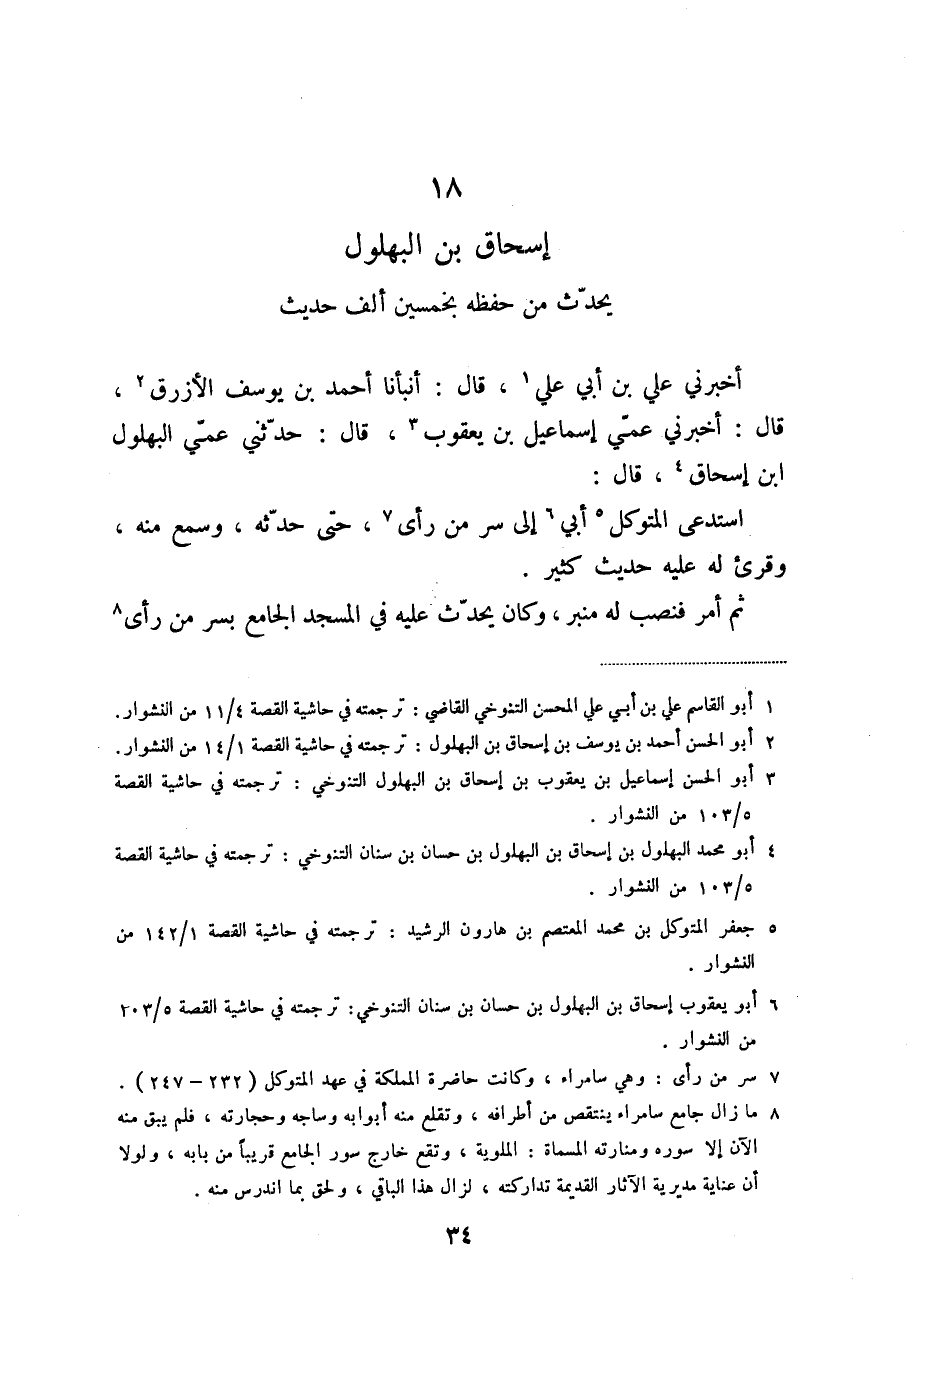 ١٨
إسحاق بن البهلول
يحدّث من حفظه بخمسين ألف حديث
أخبرني علي بن أبي علي١ ، قال : أنبأنا أحمد بن يوسف الأزرق٢ ،
قال : أخبرني عمّي إسماعيل بن يعقوب٣ ، قال : حدّثني عمّي البهلول
ابن إسحاق٤ ، قال :
استدعى المتوكل٥ أبي٦ إلى سر من رأى٧ ، حتى حدّثه ، وسمع منه ،
وقرئ له عليه حديث كثير .
ثم أمر فنصب له منبر ، وكان يحدّث عليه في المسجد الجامع بسر من رأى٨
١ أبو القاسم علي بن أبي علي المحسن التنوخي القاضي : ترجمته في حاشية القصة ١١/٤ من النشوار.
٢ أبو الحسن أحمد بن يوسف بن إسحاق بن البهلول : ترجمته في حاشية القصة ١٤/١ من النشوار.
٣ أبو الحسن إسماعيل بن يعقوب بن إسحاق بن البهلول التنوخي : ترجمته في حاشية القصة
١٠٣/٥ من النشوار .
٤ أبو محمد البهلول بن إسحاق بن البهلول بن حسان بن سنان التنوخي : ترجمته في حاشية القصة
١٠٣/٥ من النشوار .
٥ جعفر المتوكل بن محمد المعتصم بن هارون الرشيد : ترجمته في حاشية القصة ١٤٢/١ من
النشوار .
٦ أبو يعقوب إسحاق بن البهلول بن حسان بن سنان التنوخي: ترجمته في حاشية القصة ٢٠٣/٥
من النشوار .
٧ سر من رأى : وهي سامراء ، وكانت حاضرة المملكة في عهد المتوكل ( ٢٣٢ – ٢٤٧ ) .
٨ ما زال جامع سامراء ينتقص من أطرافه ، وتقلع منه أبوابه وساجه وحجارته ، فلم يبق منه
الآن إلا سوره ومنارته المسماة : الملوية ، وتقع خارج سور الجامع قريباً من بابه ، ولولا
أن عناية مديرية الآثار القديمة تداركته ، لزال هذا الباقي ، ولحق بما اندرس منه .
٣٤